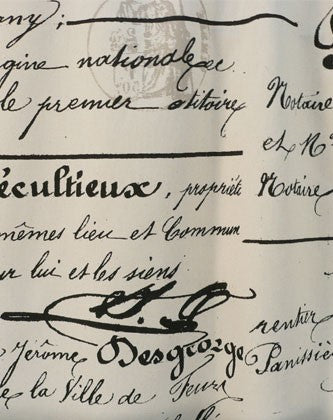 any;
gine nationale
le premier
écultieux, propriét
mêmes lieu et Commun
ur lui et les siens
Jérôme Desgeorge
e la Ville de Feurs
Notaire
et
Notaire
rentier
Panissiè